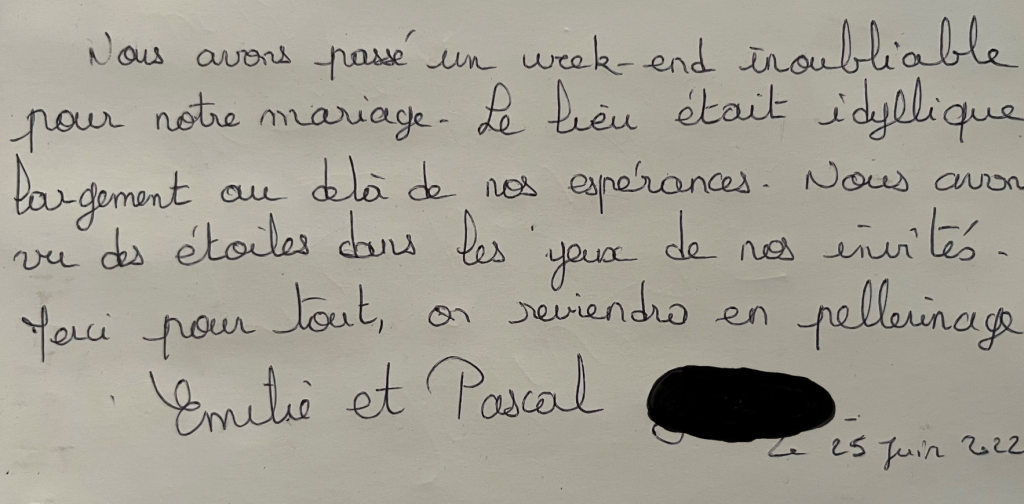 Nous avons passé un week-end inoubliable
pour notre mariage. Le lieu était idyllique
largement au delà de nos espérances. Nous avon
vu des étoiles dans les yeux de nos invités.
Merci pour tout, on reviendra en pellerinage
Emilie et Pascal
Le 25 Juin 2022